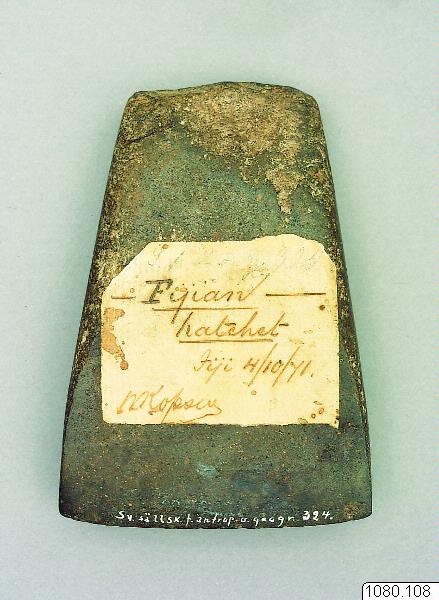 — Fijian —
hatchet
Fiji 4/10/71.
WKopsen
Sv. sällsk. f. antrop. o. geogr. 324.
1080.108